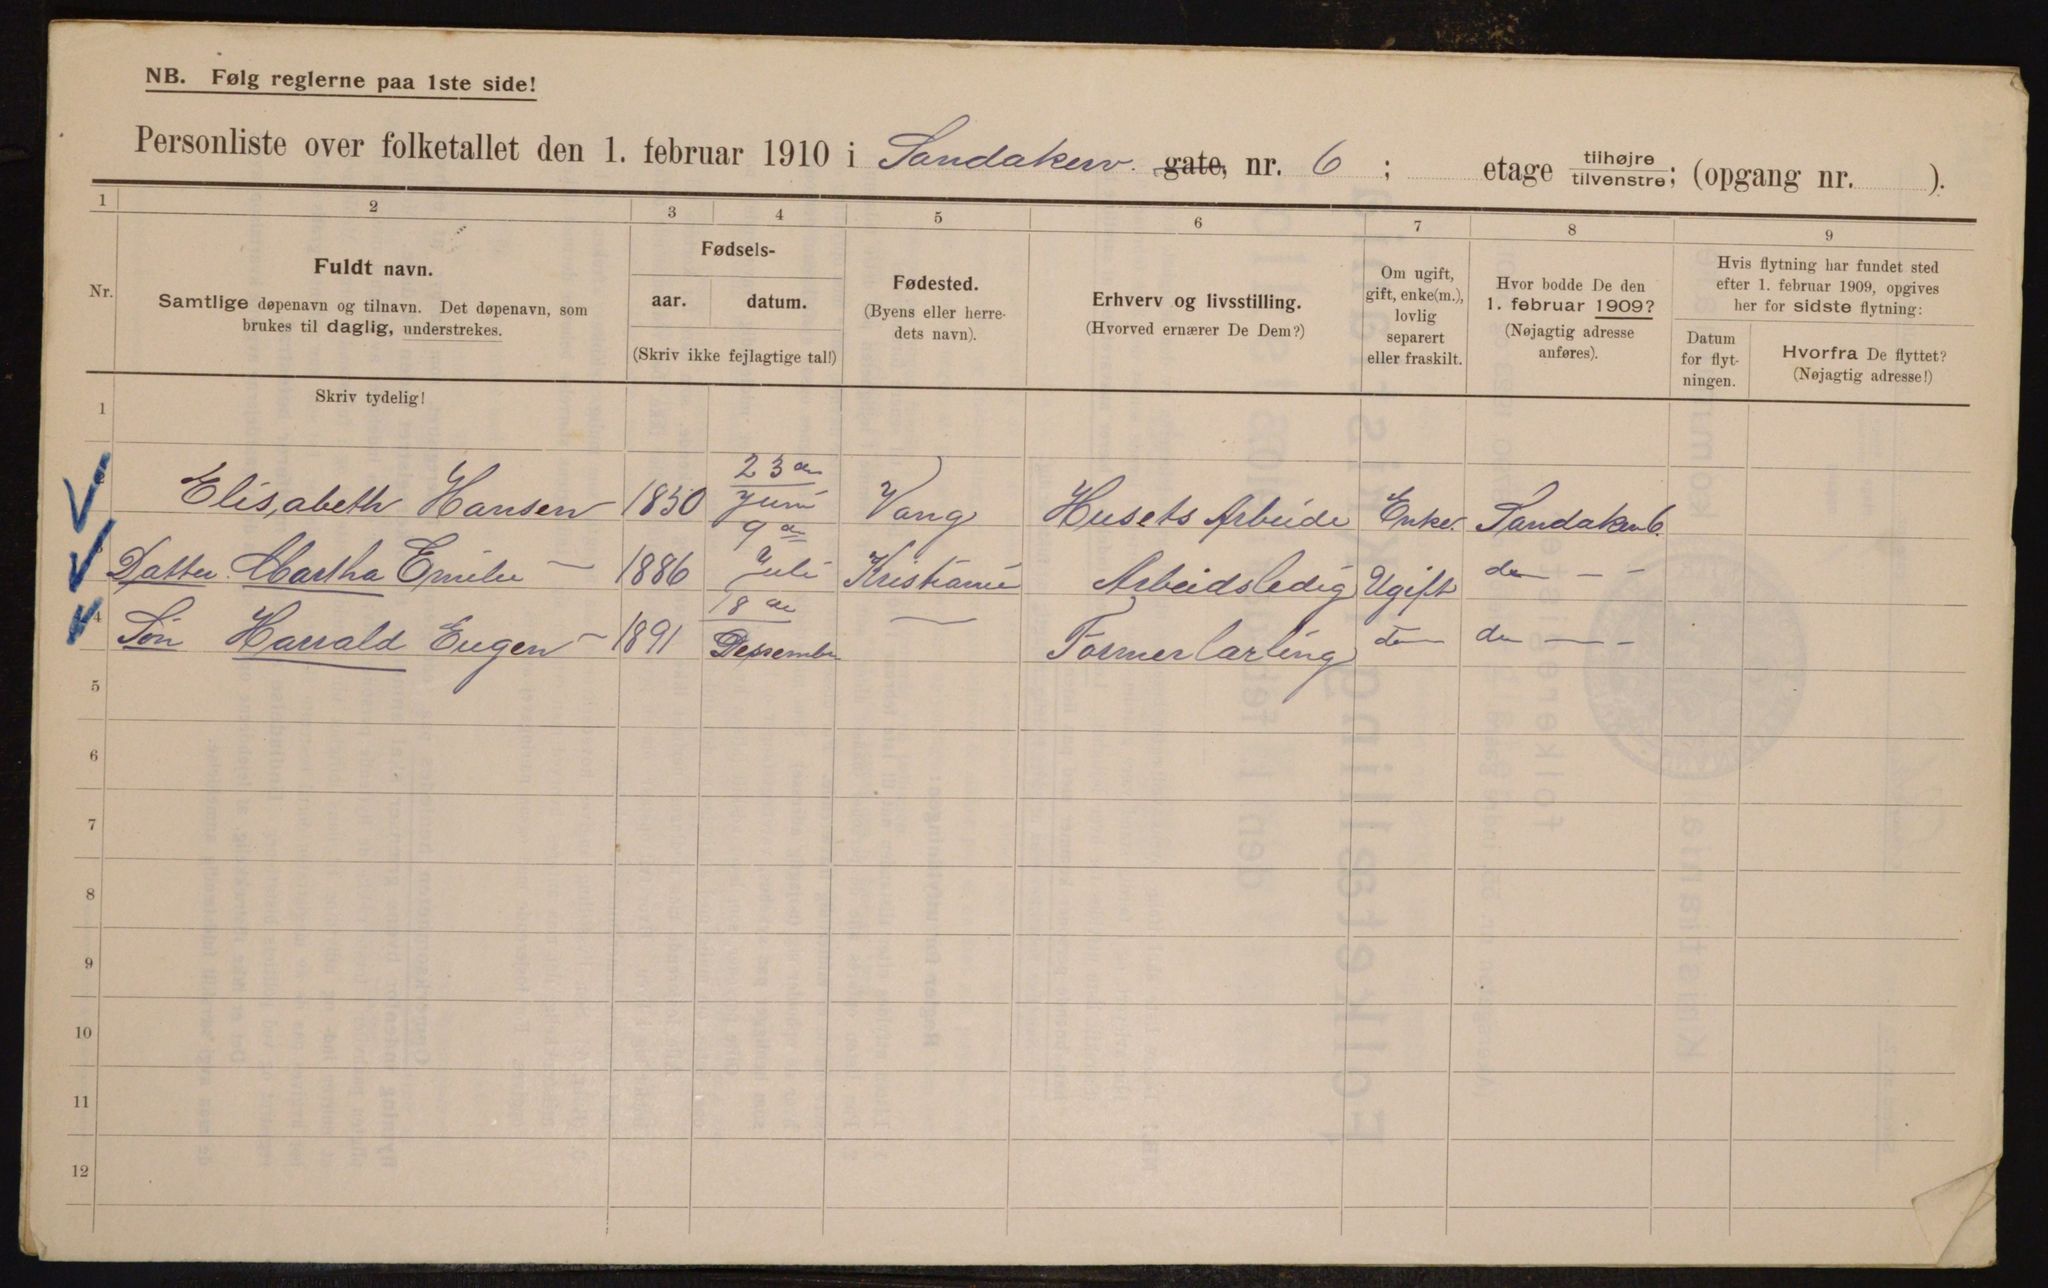 NB. Følg reglerne paa 1ste side!
Personliste over folketallet den 1. februar 1910 i Sandakerv. gate, nr. 6 ; etage tilhøjre tilvenstre; (opgang nr. ).
1 2 3 4 5 6 7 8 9
Nr.
Fuldt navn.
Samtlige døpenavn og tilnavn. Det døpenavn, som
brukes til daglig, understrekes.
Fødsels-
aar. datum.
(Skriv ikke fejlagtige tal!)
Fødested.
(Byens eller herre-
dets navn).
Erhverv og livsstilling.
(Hvorved ernærer De Dem?)
Om ugift,
gift, enke(m.),
lovlig
separert
eller fraskilt.
Hvor bodde De den
1. februar 1909?
(Nøjagtig adresse
anføres).
Hvis flytning har fundet sted
efter 1. februar 1909, opgives
her for sidste flytning:
Datum
for flyt-
ningen.
Hvorfra De flyttet?
(Nøjagtig adresse!)
Skriv tydelig!
1
Elisabeth Hansen 1850 23 de Juni Vang Husets Arbeide Enke. Sandakerv 6.
Datter Martha Emilie — 1886 9 de Juli Kristiania Arbeidsledig Ugift do — —
4 Søn Harrald Eugen — 1891 18 de Dessember — Formerlærling do do — —
5
6
7
8
9
10
11
12